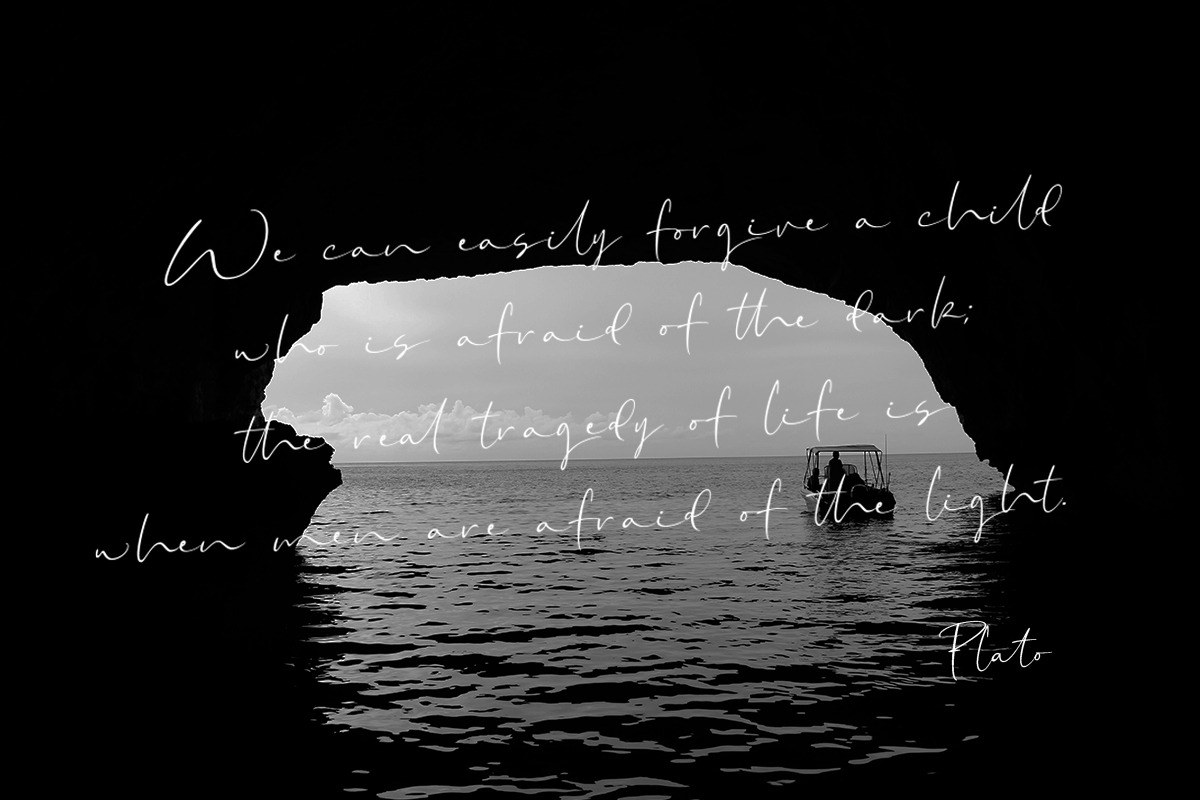 We can easily forgive a child
who is afraid of the dark;
the real tragedy of life is
when men are afraid of the light.
Plato